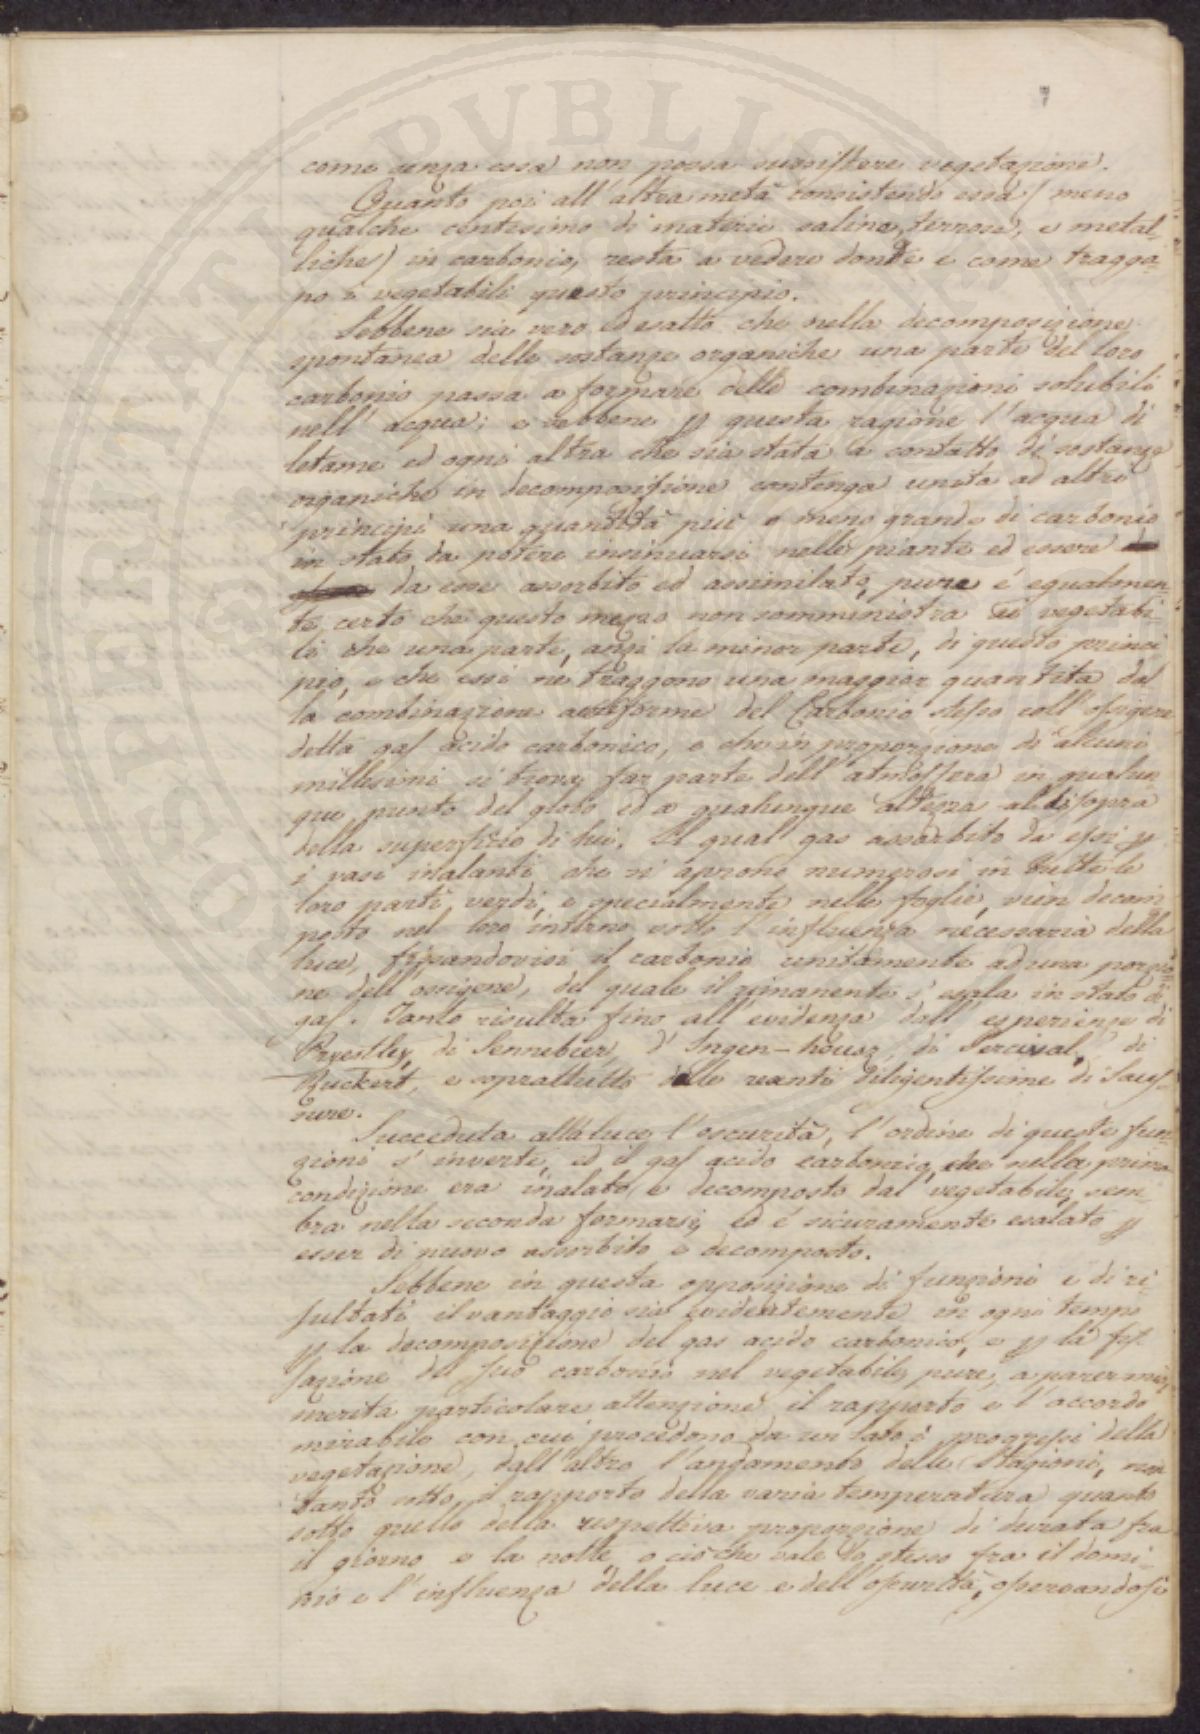 7
come senza essa non possa sussistere vegetazione.
Quanto poi all'altra metà consistendo essa (meno
qualche centesimo di materie saline, terrose, e metal-
liche) in carbonio, resta a vedere donde e come tragga-
no i vegetabili questo principio.
Sebbene sia vero ed esatto che nella decomposizione
spontanea delle sostanze organiche una parte del loro
carbonio passa a formare delle combinazioni solubili
nell'acqua; e sebbene p questa ragione l'acqua di
letame ed ogni altra che sia stata a contatto di sostanze
organiche in decomposizione contenga unita ad altri
principi una quantità più o meno grande di carbonio
in stato da potere insinuarsi nelle piante ed essere
da esse assorbito ed assimilato, pure é egualmen-
te certo che questo mezzo non somministra ai vegetabi-
li che una parte, anzi la minor parte, di questo princi
pio, e che essi ne traggono una maggior quantita dal
la combinazione aeriforme del Carbonio stesso coll'ossigene
detta gas acido carbonico, e che in proporzione di alcuni
millesimi si trova far parte dell'atmosfera in qualun
que punto del globo ed a qualunque altezza al disopra
della superficie di lui. Il qual gas assorbito da essi p
i vasi inalanti che si aprono numerosi in tutte le
loro parti verdi, e specialmente nelle foglie, vien decom
posto nel loro interno sotto l'influenza necessaria della
luce, fissandovisi il carbonio unitamente ad una porzio
ne dell'ossigene, del quale il rimanente s'esala in stato di
gas. Tanto risulta fino all'evidenza dall'esperienze di
Pryestley, di Sennebier, d'Ingen-housz, di Percival, di
Ruckert, e soprattutto dalle recenti diligentissime di Saus-
sure.
Succeduta alla luce l'oscurità, l'ordine di queste fun-
zioni s'inverte, ed il gas acido carbonico, che nella prima
condizione era inalato, e decomposto dal vegetabile, sem-
bra nella seconda formarsi, ed é sicuramente esalato p
esser di nuovo assorbito e decomposto.
Sebbene in questa opposizione di funzioni e di ri
sultati il vantaggio sia evidentemente in ogni tempo
p la decomposizione del gas acido carbonico, e p la fis
sazione del suo carbonio nel vegetabile, pure, a parer mio,
merita particolare attenzione il rapporto e l'accordo
mirabile con cui procedono da un lato i progressi della
vegetazione, dall'altro l'andamento delle Stagioni, non
tanto sotto il rapporto della varia temperatura quanto
sotto quello della respettiva proporzione di durata fra
il giorno e la notte, o ciò che vale lo stesso fra il domi-
nio e l'influenza della luce e dell'oscurità, operandosi